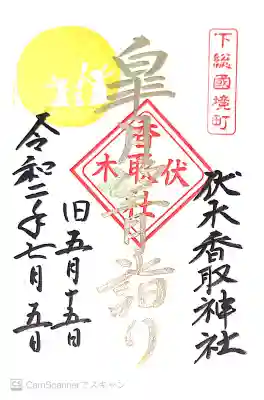 下総國境町
伏木香取神社
皐月 詣り
伏木
香取社
旧五月十五日
令和二年七月五日
CS CamScannerでスキャン